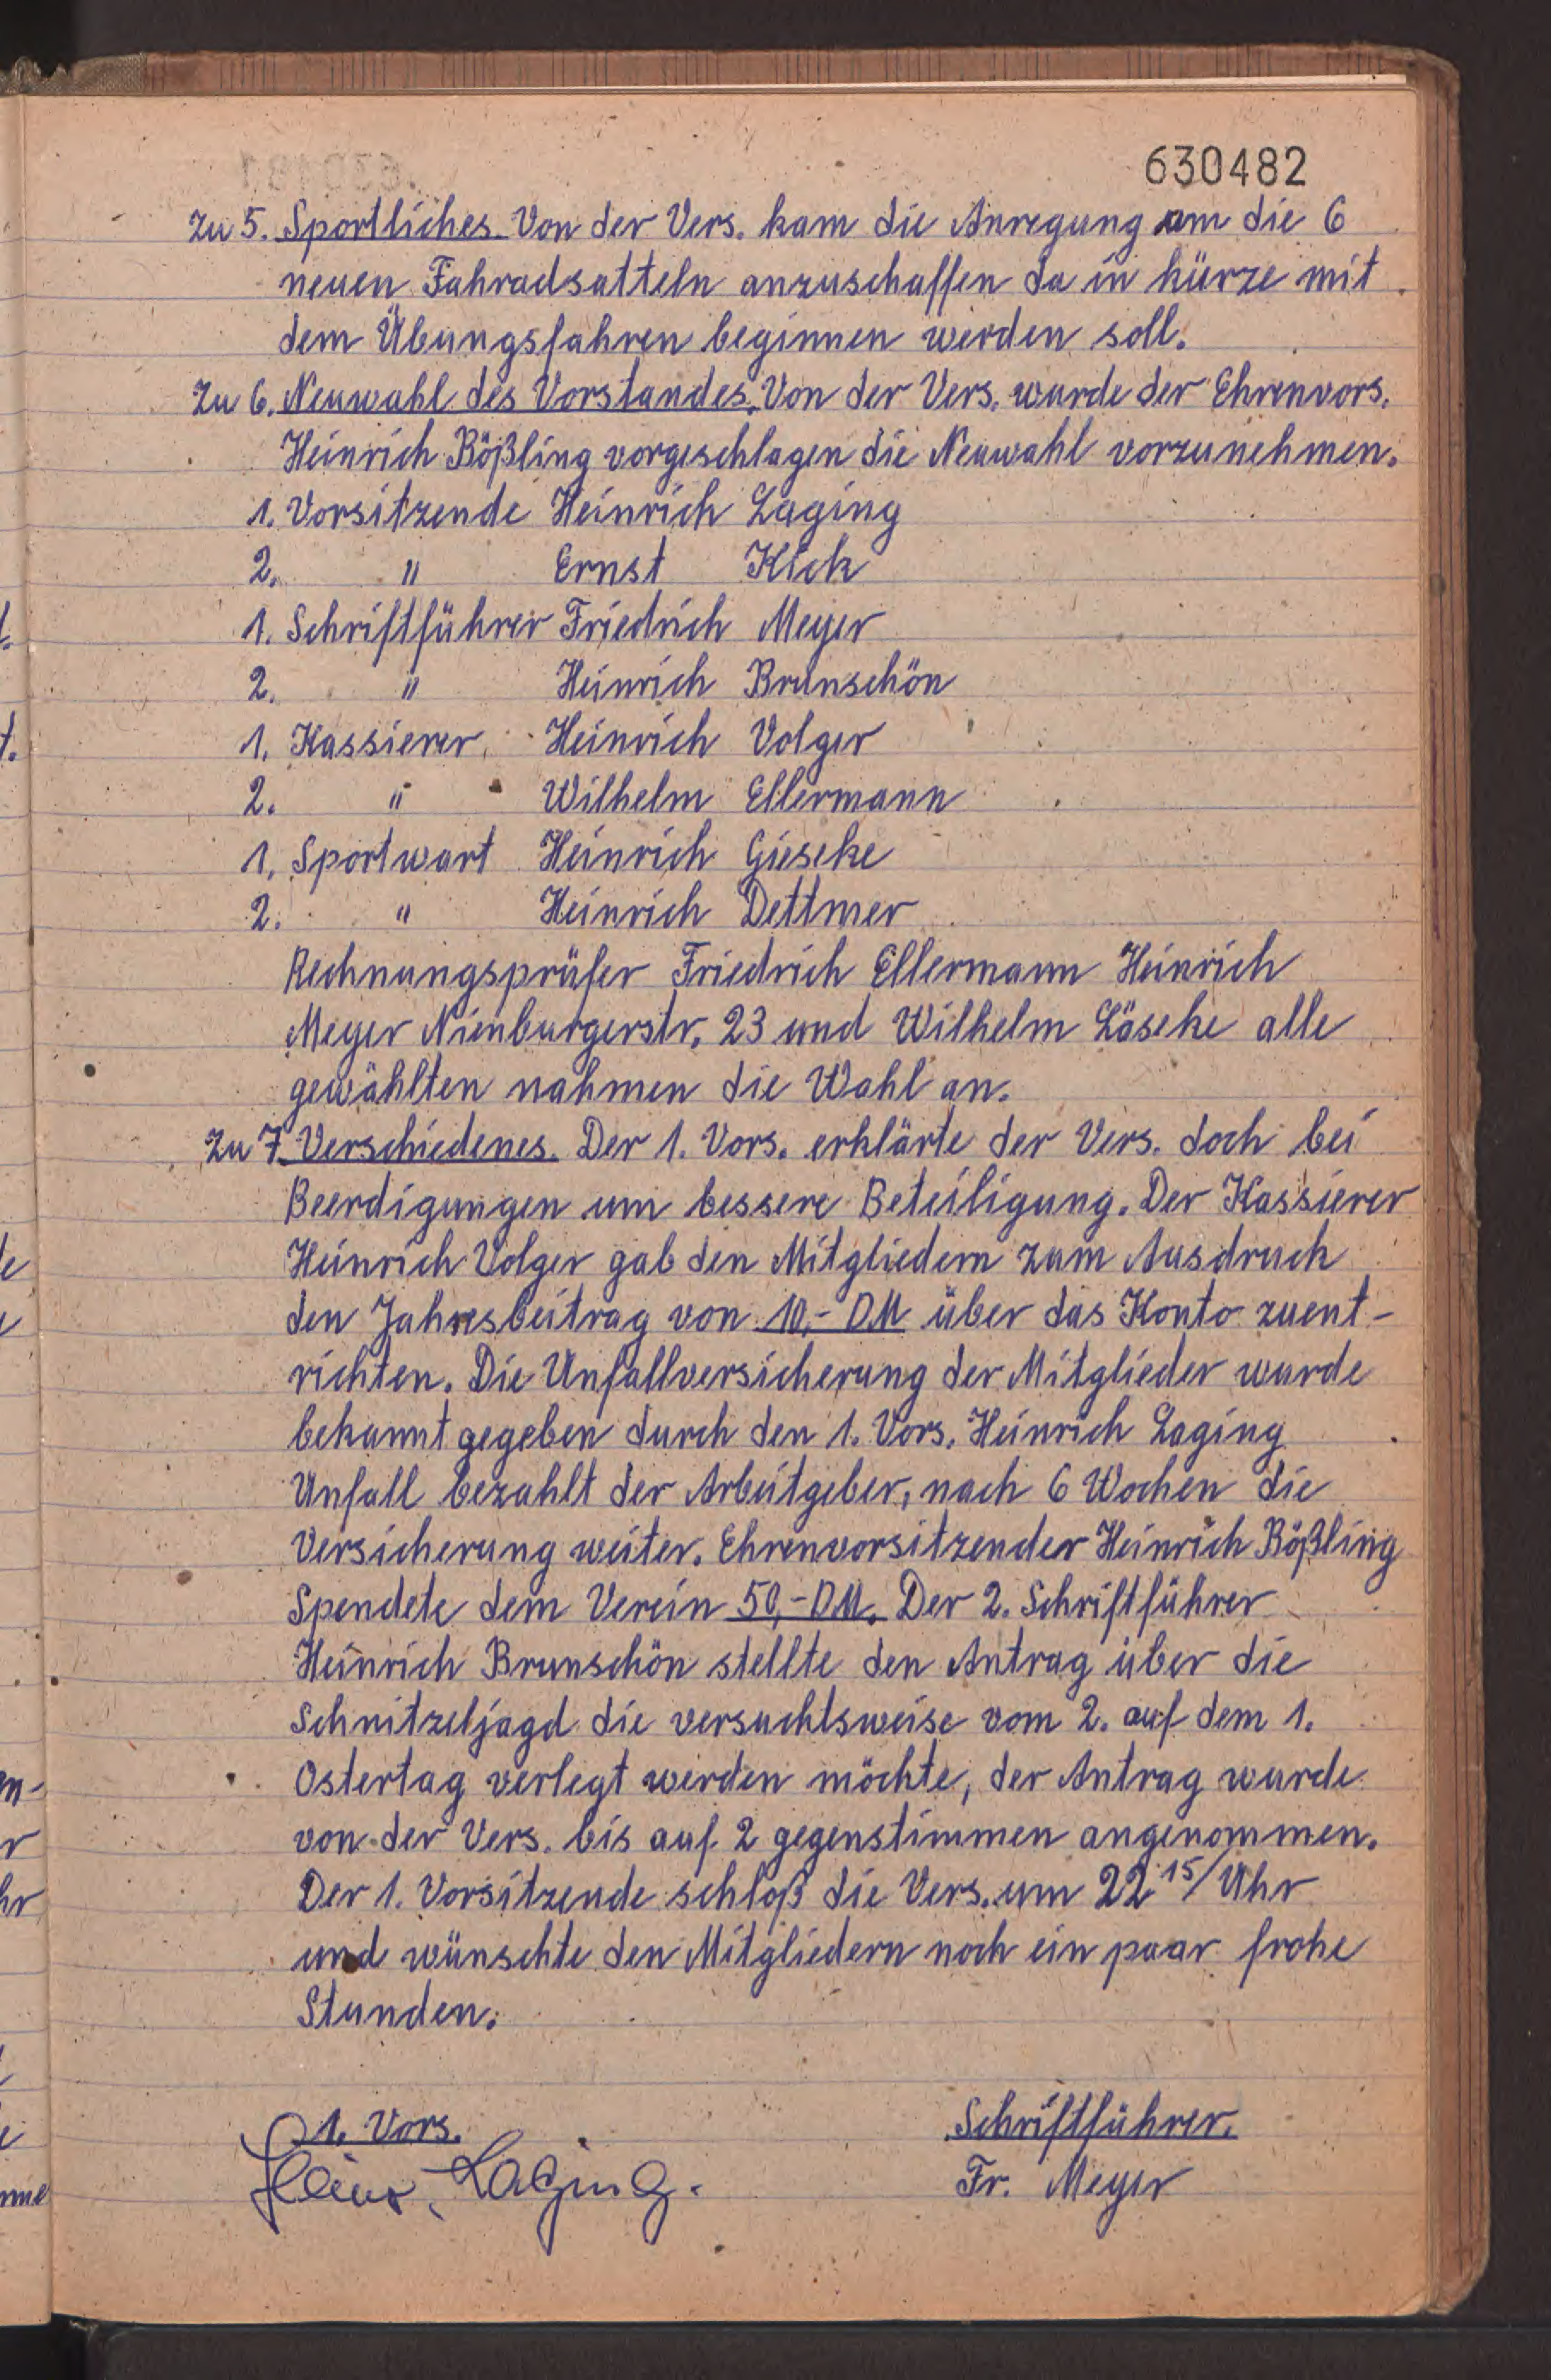 630482
zu 5. Sportliches Von der Vers. kam die Anregung um die 6
neuen Fahradsatteln anzuschaffen da in kürze mit
dem Übungsfahren beginnen werden soll.
zu 6. Neuwahl des Vorstandes. Von der Vers. wurde der Ehrenvors.
Heinrich Bößling vorgeschlagen die Neuwahl vorzunehmen.
1. Vorsitzende Heinrich Laging
2. " Ernst Kick
1. Schriftführer Friedrich Meyer
2. " Heinrich Brunschön
1. Kassierer Heinrich Volger
2. " Wilhelm Ellermann
1. Sportwart Heinrich Gieseke
2. " Heinrich Dettmer
Rechnungsprüfer Friedrich Ellermann Heinrich
Meyer Nienburgerstr. 23 und Wilhelm Löseke alle
gewählten nahmen die Wahl an.
zu 7. Verschiedenes. Der 1. Vors. erklärte der Vers. doch bei
Beerdigungen um bessere Beteiligung. Der Kassierer
Heinrich Volger gab den Mitgliedern zum Ausdruck
den Jahresbeitrag von 10,- DM über das Konto zuent-
richten. Die Unfallversicherung der Mitglieder wurde
bekannt gegeben durch den 1. Vors. Heinrich Laging
Unfall bezahlt der Arbeitgeber, nach 6 Wochen die
Versicherung weiter. Ehrenvorsitzender Heinrich Bößling
Spendete dem Verein 50,- DM. Der 2. Schriftführer
Heinrich Brunschön stellte den Antrag über die
Schnitzeljagd die versuchtsweise vom 2. auf dem 1.
Ostertag verlegt werden möchte, der Antrag wurde
von der Vers. bis auf 2 gegenstimmen angenommen.
Der 1. Vorsitzende schloß die Vers. um 22 15/ Uhr
und wünschte den Mitgliedern noch ein paar frohe
Stunden.
1. Vors. Schriftführer.
Heinr. Laging. Fr. Meyer